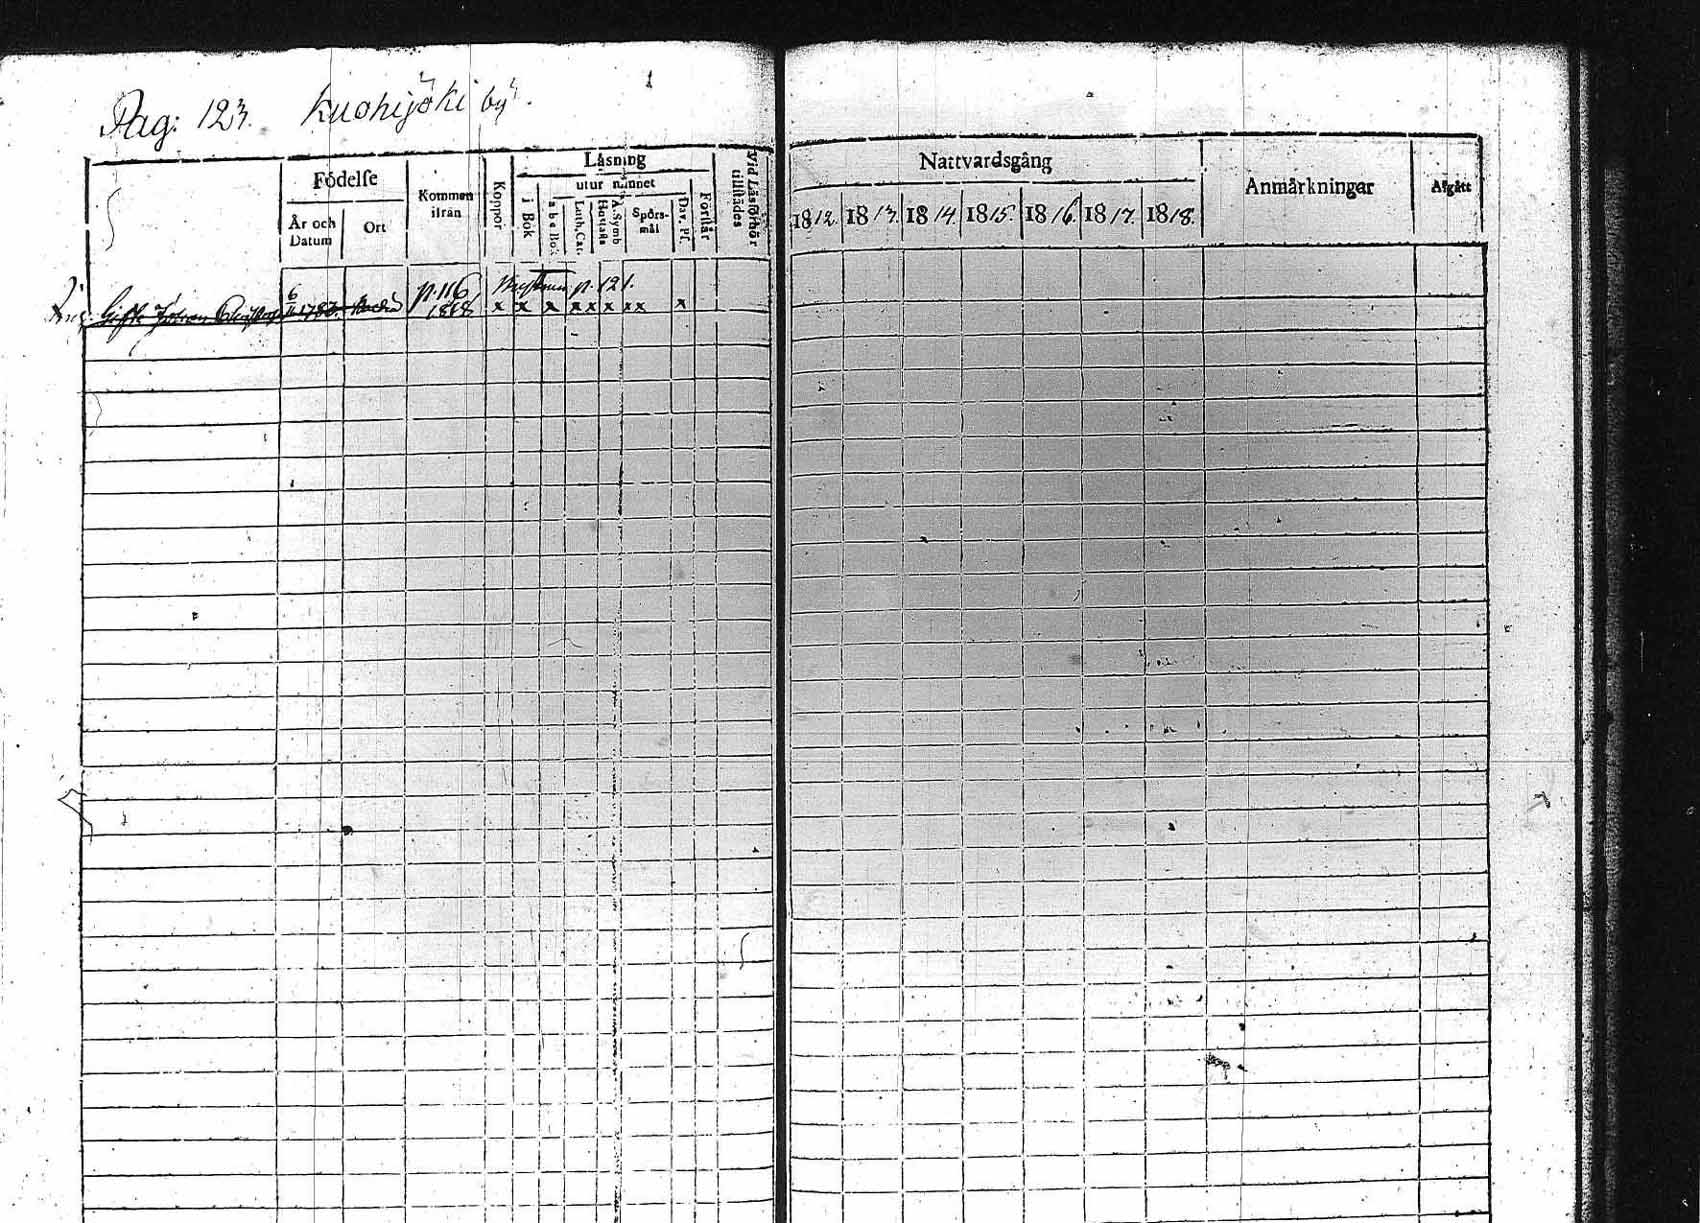 Pag: 123. Kuohijöki by
Födelse
År och Datum
Ort
Kommen ifrån
Koppor
Läsning
utur minnet
i Bok
a b c Bok
Luth. Cat.
Hustafla
A. Symb
Spörsmål
Dav. Ps.
Förstår
Vid Läsförhör tillstädes
Nattvardsgång
1812. 1813. 1814. 1815. 1816. 1817. 1818.
Anmärkningar
Afgått
p. 116 p. 121.
Gifte Johan 6 1783. 1818 x x x x x x x x x